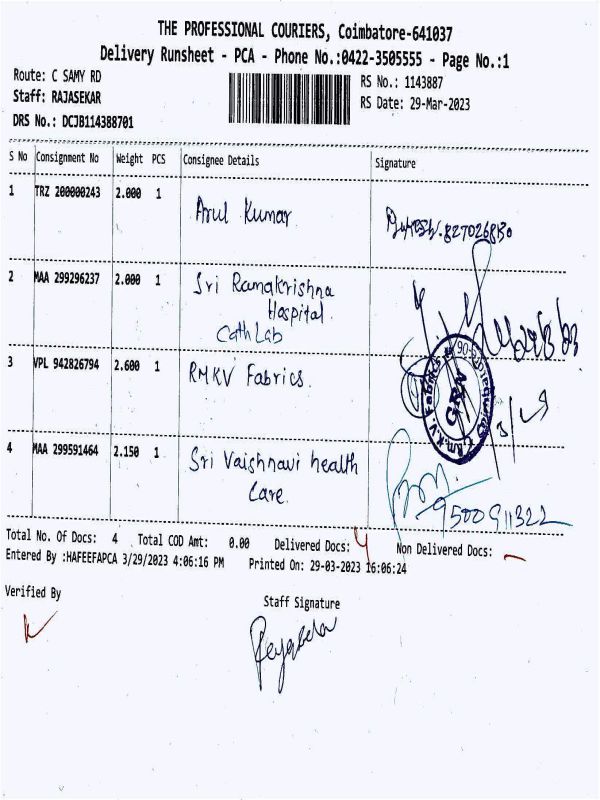 THE PROFESSIONAL COURIERS, Coimbatore-641037
Delivery Runsheet - PCA - Phone No.:0422-3505555 - Page No.:1
Route: C SAMY RD
RS No.: 1143887
Staff: RAJASEKAR
RS Date: 29-Mar-2023
DRS No.: DCJB114388701
S No Consignment No Weight PCS Consignee Details Signature
1 TRZ 200000243 2.000 1 Arul Kumar
2 MAA 299296237 2.000 1 Sri Ramakrishna
Hospital
Cath Lab
3 VPL 942826794 2.600 1 RMKV Fabrics.
4 MAA 299591464 2.150 1 Sri Vaishnavi health
Care
9500911322
Total No. Of Docs: 4 Total COD Amt: 0.00 Delivered Docs: 4 Non Delivered Docs: -
Entered By :HAFEEFAPCA 3/29/2023 4:06:16 PM Printed On: 29-03-2023 16:06:24
Verified By
Staff Signature